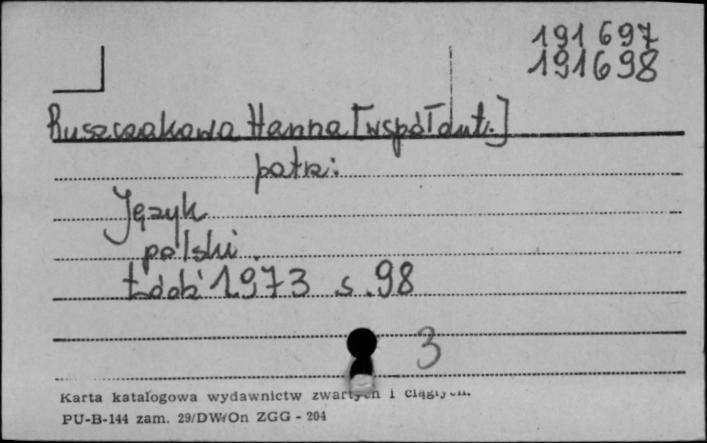 191 697
191698
Ruszczakowa Hanna [współaut.]
patrz:
Język
polski.
Łódź 1973 s. 98
3
Karta katalogowa wydawnictw zwartych i ciągłych.
PU-B-144 zam. 29/DW/On ZGG - 204